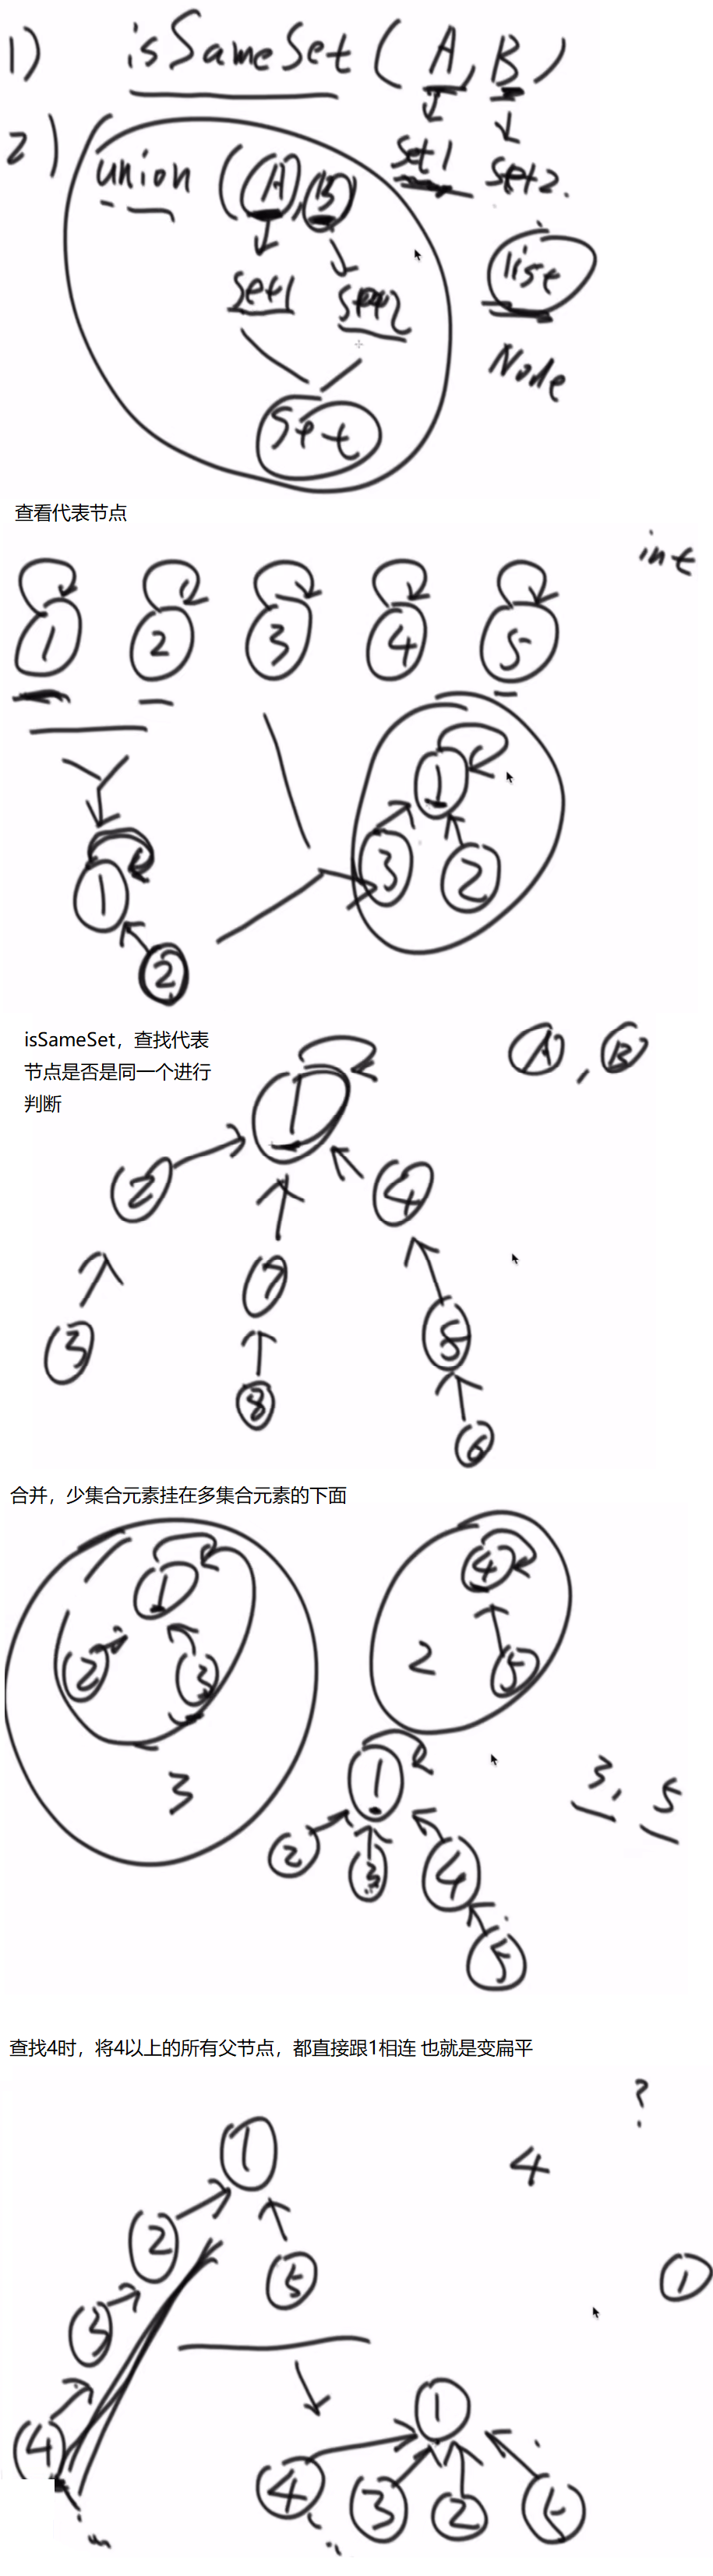 1) isSameSet (A, B)
set1 set2.
2) union (A, B)
set1 set2
list
Node
set
查看代表节点
int
1 2 3 4 5
1
3 2
1
2
isSameSet，查找代表
节点是否是同一个进行
判断
A, B
1
2 4
7
3 5
8
6
合并，少集合元素挂在多集合元素的下面
1 4
2 3 2 5
3
1 3, 5
2 3 4
5
查找4时，将4以上的所有父节点，都直接跟1相连 也就是变扁平
?
1 4
2
5 1
3
4
1
4 3 2 5